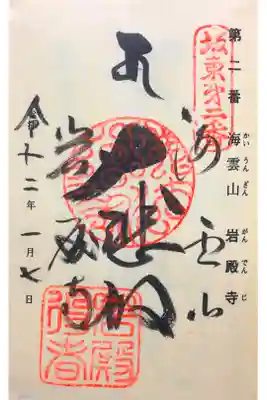 第二番 海雲山 岩殿寺
かい うん ざん がん でん じ
坂東第二番
海雲山
大悲殿
岩殿寺
十二年一月七日